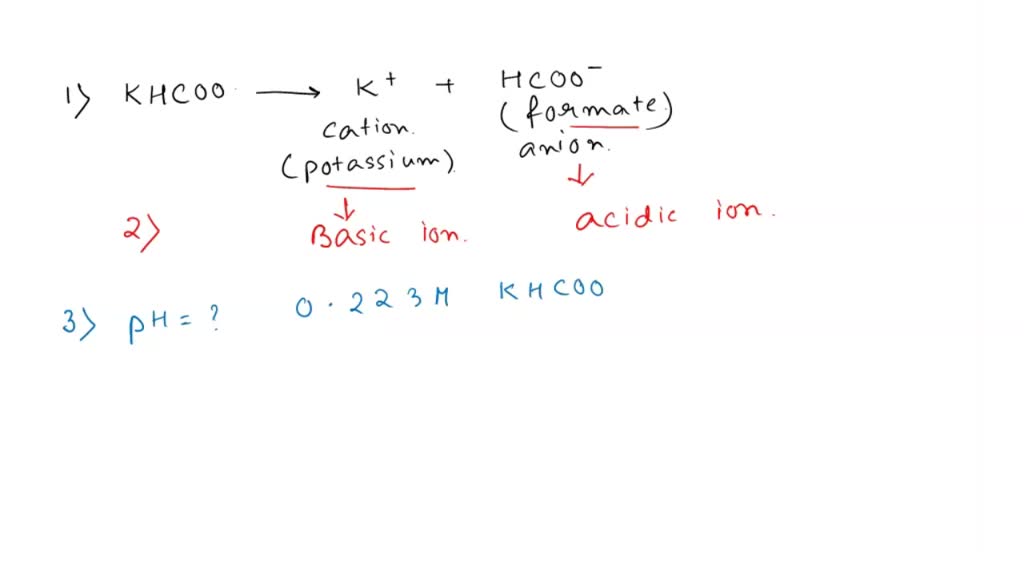 1) KHCOO ⟶ K⁺ + HCOO⁻
cation. (formate)
(potassium) anion.
↓ ↓
2) Basic ion. acidic ion.
3) pH = ? 0.223M KHCOO